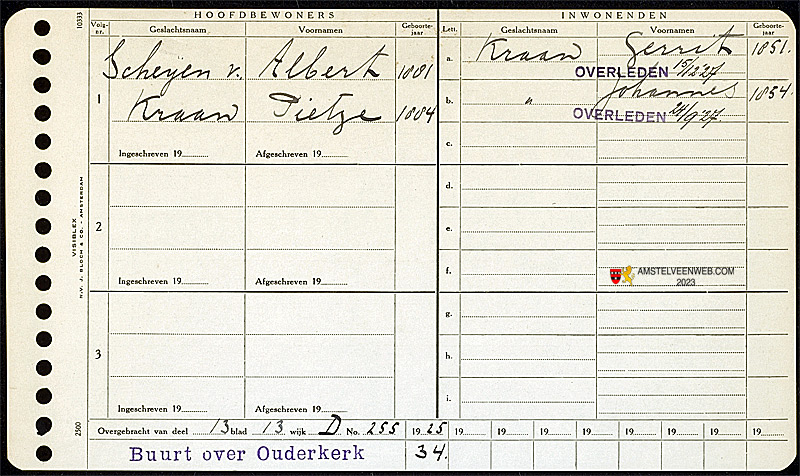 HOOFDBEWONERS
Volg-nr. Geslachtsnaam Voornamen Geboorte-jaar
1 Scheyen v. Albert 1881
Kraan Pietje 1884
Ingeschreven 19 Afgeschreven 19
2
Ingeschreven 19 Afgeschreven 19
3
Ingeschreven 19 Afgeschreven 19
INWONENDEN
Lett. Geslachtsnaam Voornamen Geboorte-jaar
a. Kraan Gerrit 1851.
OVERLEDEN 15/2'27
b. " Johannes 1854.
OVERLEDEN 24/9'27
c.
d.
e.
f.
AMSTELVEENWEB.COM
2023
g.
h.
i.
Overgebracht van deel 13 blad 13 wijk D No. 255 1925 19 19 19 19 19 19 19 19
Buurt over Ouderkerk 34.
10333
VISIBLEX
N.V. J. BLOCH & CO. - AMSTERDAM
2500